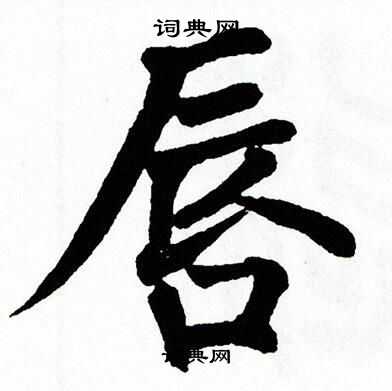 词典网
唇
词典网